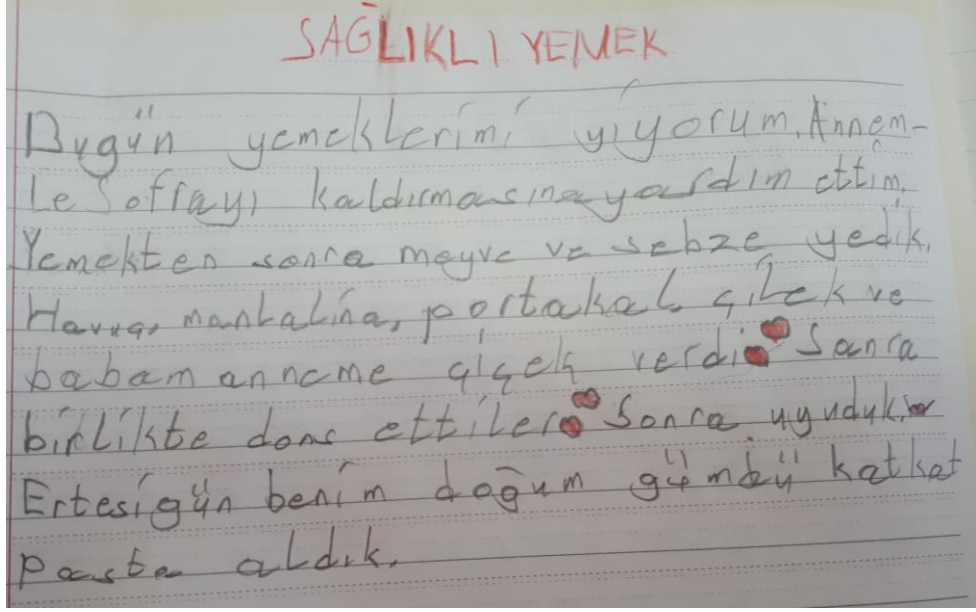 SAĞLIKLI YEMEK
Bugün yemeklerimi yiyorum. Annem-
le Sofrayı kaldırmasına yardım ettim.
Yemekten sonra meyve ve sebze yedik.
Havuç, mantalina, portakal, çilek ve
babam anneme çiçek verdi Sonra
birlikte dans ettiler Sonra uyuduk.
Ertesi gün benim doğum katkat
pasta aldık.